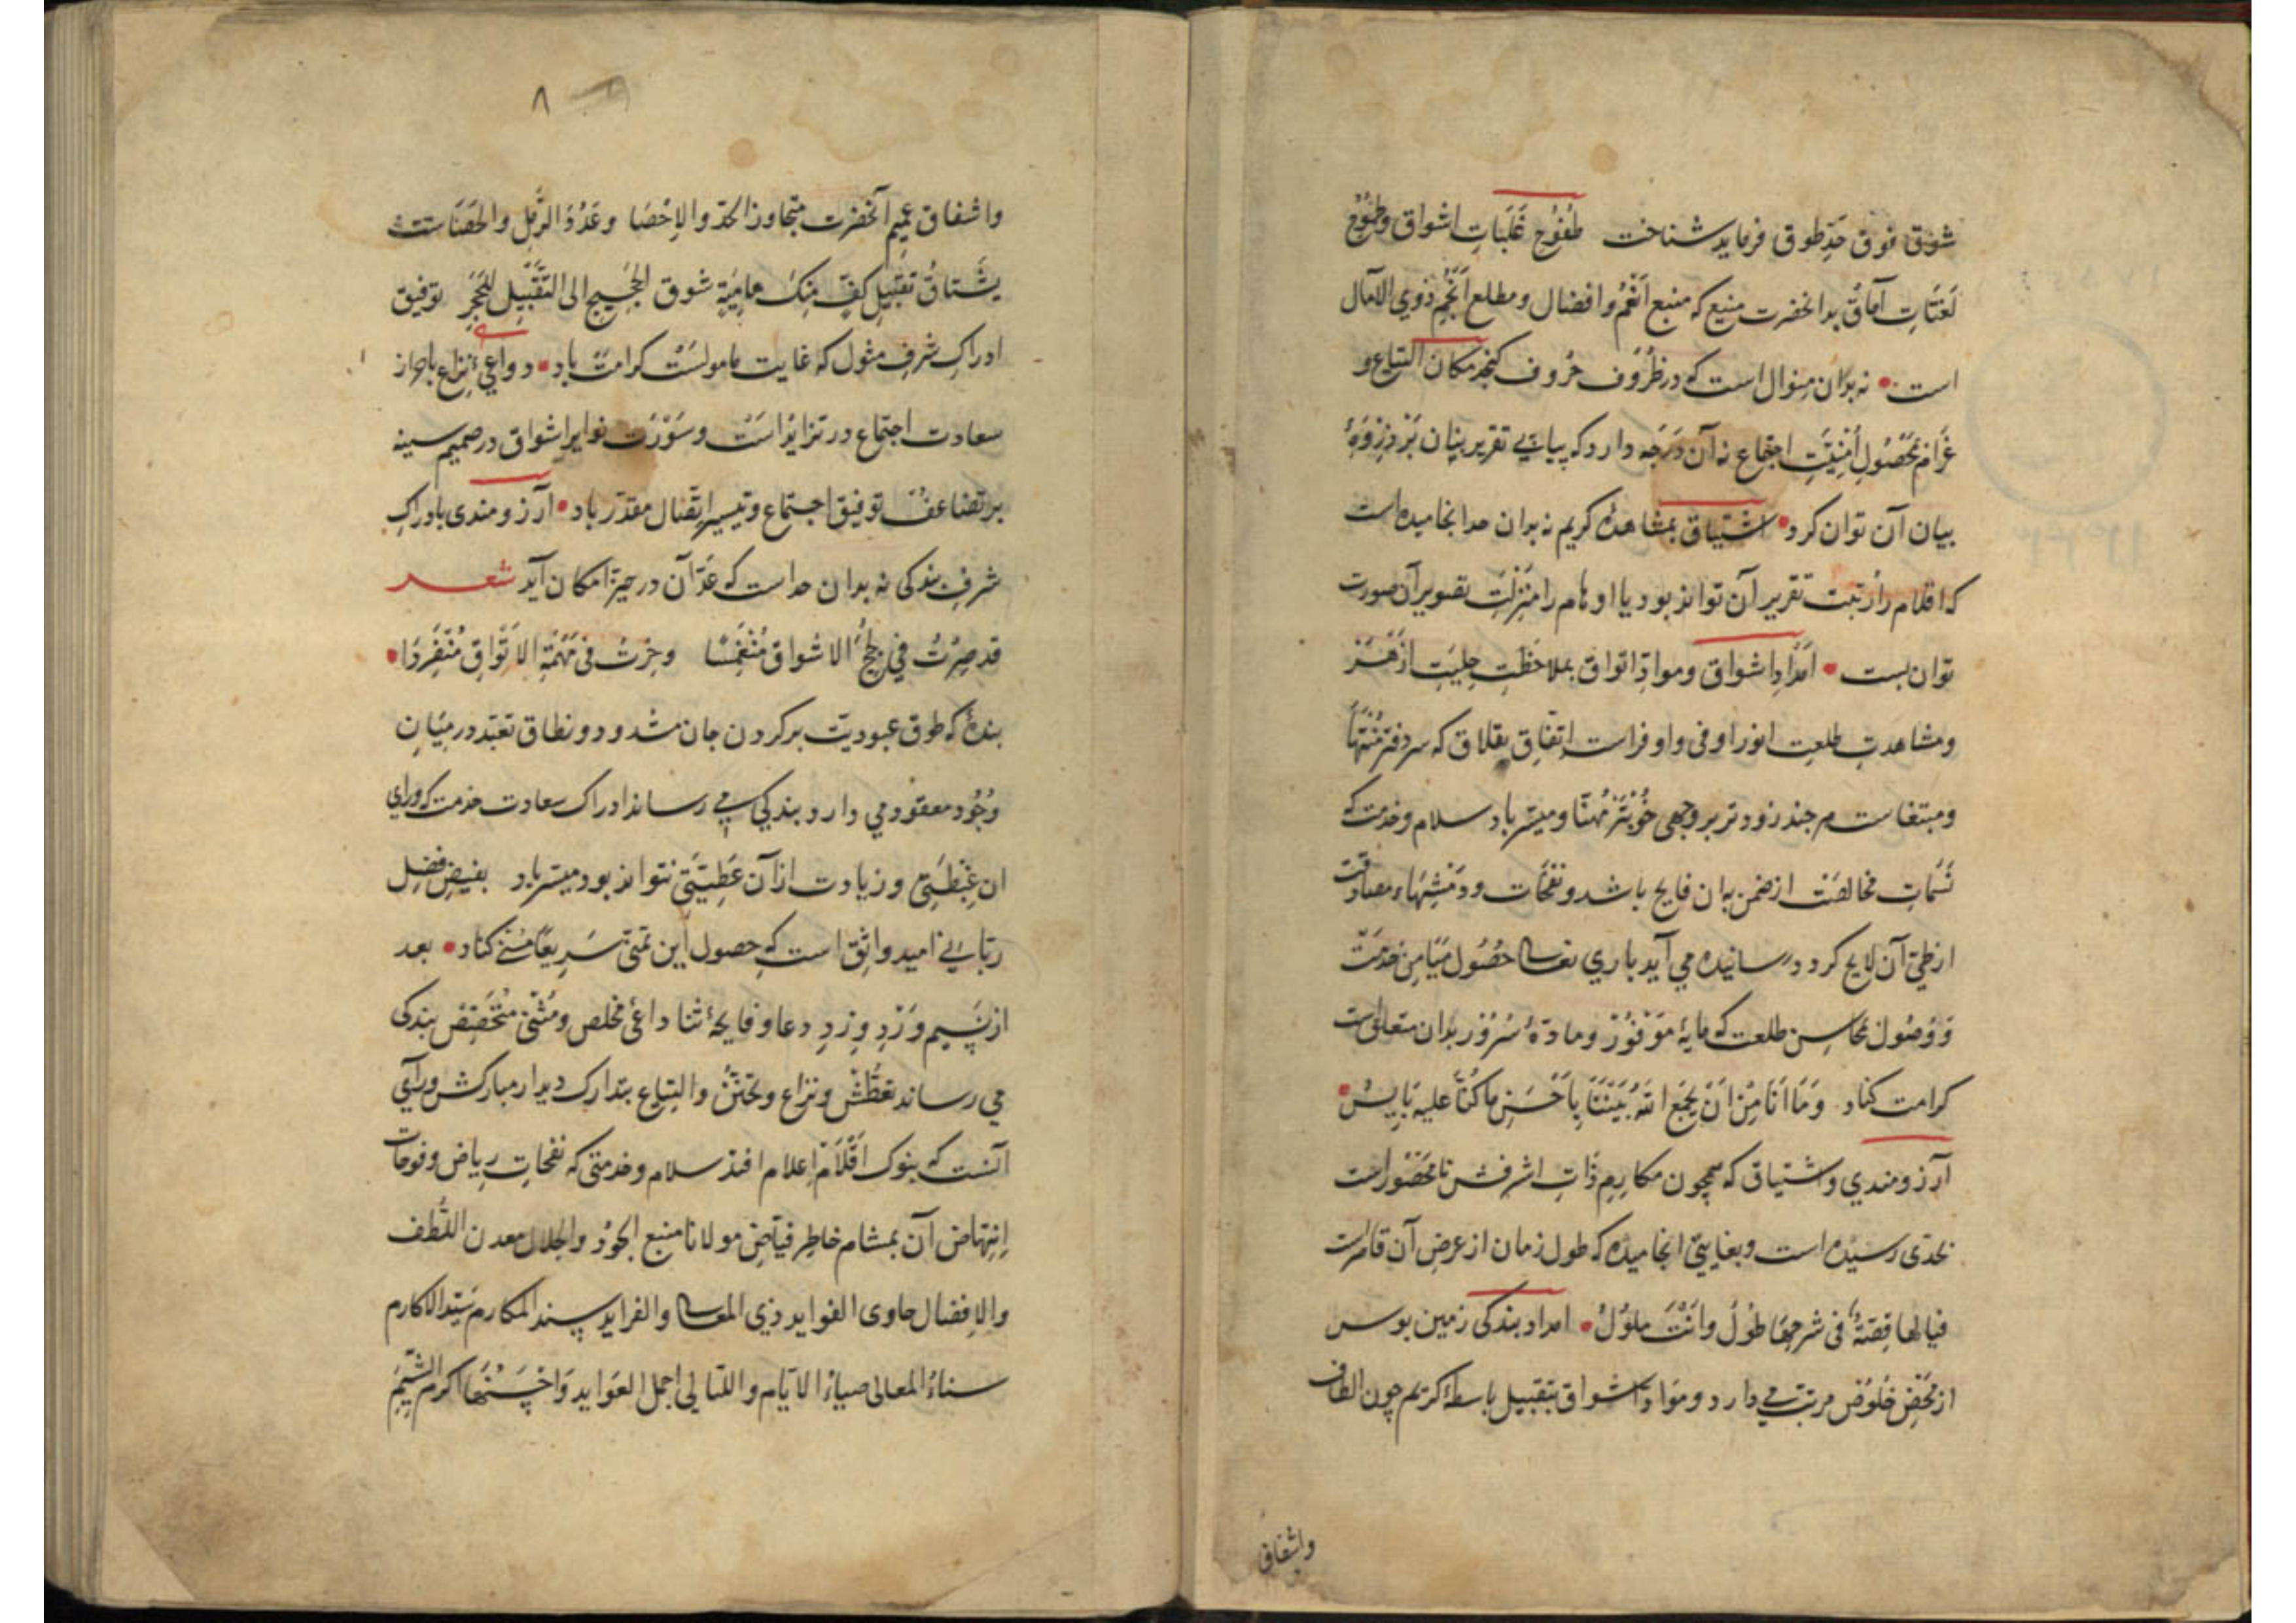 شوق فوق حدِّ طوق فرماید شناخت طُفُوحِ غَلَبَاتِ اشواق و طُمُوحِ
اتواق بدانحضرت منیع که منبع انعُم و افضال و مطلع اَنْجُمِ ذوی الآمال
است نه بدان منوال است که در ظُرُوف حُرُوف کنجد مکان التیاع و
غرام بحُصُولِ اُمْنِیَّتِ اجتماع نه آن دَرَجه دارد که بپایِ تقریر بنان بر ذِرْوَهٔ
بیان آن توان کرد اشتیاق بمشاهدهٔ کریم نه بدان حد انجامیده است
که اقلام را رتبت تقریر آن تواند بود یا اوهام را منزلت تصویر آن صورت
توان بست امدادِ اشواق و موادِّ اتواق بملاحظتِ
و مشاهدتِ طلعتِ انور اوفی و اوفر است اتّفاقِ تلاق که سر دفتر
و مبتغاست هر چند زودتر بر وجهی خوبتر مُهنّا و میسّر باد سلام و خدمت که
نَسَماتِ مخالصَت از ضمن بدان فایح باشد و نفحات
از طیّ آن لایح کردد رسانیده می آید باری تعالی حُصُول مَیَامِن خدمت
وَ وُصُول محاسِن طلعت که مایهٔ مَوْفُوْر و مادّهٔ سُرُوْر بدان متعلق است
کرامت کناد وَمَا اَنَا مِنْ اَنْ یَجْمَعَ اللهُ بَیْنَنَا بِاَحْسَنِ مَا کُنَّا علیه بِآیِسْ
آرزومندی و اشتیاق که همچون مکارِمِ ذاتِ اشرفش نامحصُور است
بحدّی رسیده است و بغایتی انجامیده که طول زمان از عرضِ آن قاصرست
فیا لها قِصَّةً فی شرحِهَا طُوْلُ وَاَنْتَ مَلُوْلُ امداد بندکی زمین بوس
از مَحْضِ خُلُوْص مرتّب می دارد و موادّ اشواق بتقبیل باسطهٔ کریم چون الطاف
واشفاق
۸
واشفاق عمیمِ آنحضرت متجاوز الحدّ والاِحْصَا وعَدَدُ الرَّمْلِ والحَصَاست
یَشْتاقُ تقبیلَ کفٍّ مِنکَ هامِیَةٍ شوق الحَجِیجِ الی التَّقْبِیلِ للحَجَرِ توفیق
ادراکِ شرفِ مثول که غایت مامولست کرامت باد دواعیِ نزاع باحراز
سعادت اجتماع در تزاید است و سَوْرَت نوایر اشواق در صمیم سینه
بر تضاعف توفیق اجتماع و تیسیر اتّصال مقدّر باد آرزومندی بادراکِ
شرفِ بندکی نه بدان حد است که عدّ آن در حیّز امکان آید شعر
قد صِرْتُ فی لُجَجِ الاشواق مُنْغَمِسًا وحِرْتُ فی مَهْمَهِ الاَتْواقِ مُنْفَرِدَا
بندهٔ که طوق عبودیّت بر کردن جان مشدود و نطاق تعبّد در میان
وُجُود معقود می دارد بندکی می رساند ادراک سعادت خدمت که ورای
ان غِبْطَتِی و زیادت از آن عَطِیَّتَی نتواند بود میسّر باد بفیضِ فضلِ
ربّانی امید واثق است که حصول این تمنّی سَرِیعًا کناد بعد
از نسِیم وَرْدِ وِرْدِ دعا و فایحهٔ ثنا داعیِ مخلص و مُثْنیِ متخصّص بندکی
می رساند تعطُّش و نزاع و تحنّن و التیاع بتدارک دیدار مبارکش ورای
آنست که بنوک اَقْلَامْ اِعلام افتد سلام و خدمتی که نفحاتِ ریاض و فوحات
اِنتِهاض آن بمشام خاطِر فیّاضِ مولانا منبع الجُوْد والجلال معدن اللُّطف
والاِفضال حاوی الفواید ذی المعالی والفراید سند المکارم سیّد الاکارم
سناءُ المعالی ضیاءُ الایّام واللیالی اجمل العَواید وَاَحْسَنُهَا اکرم الشِّیَمِ